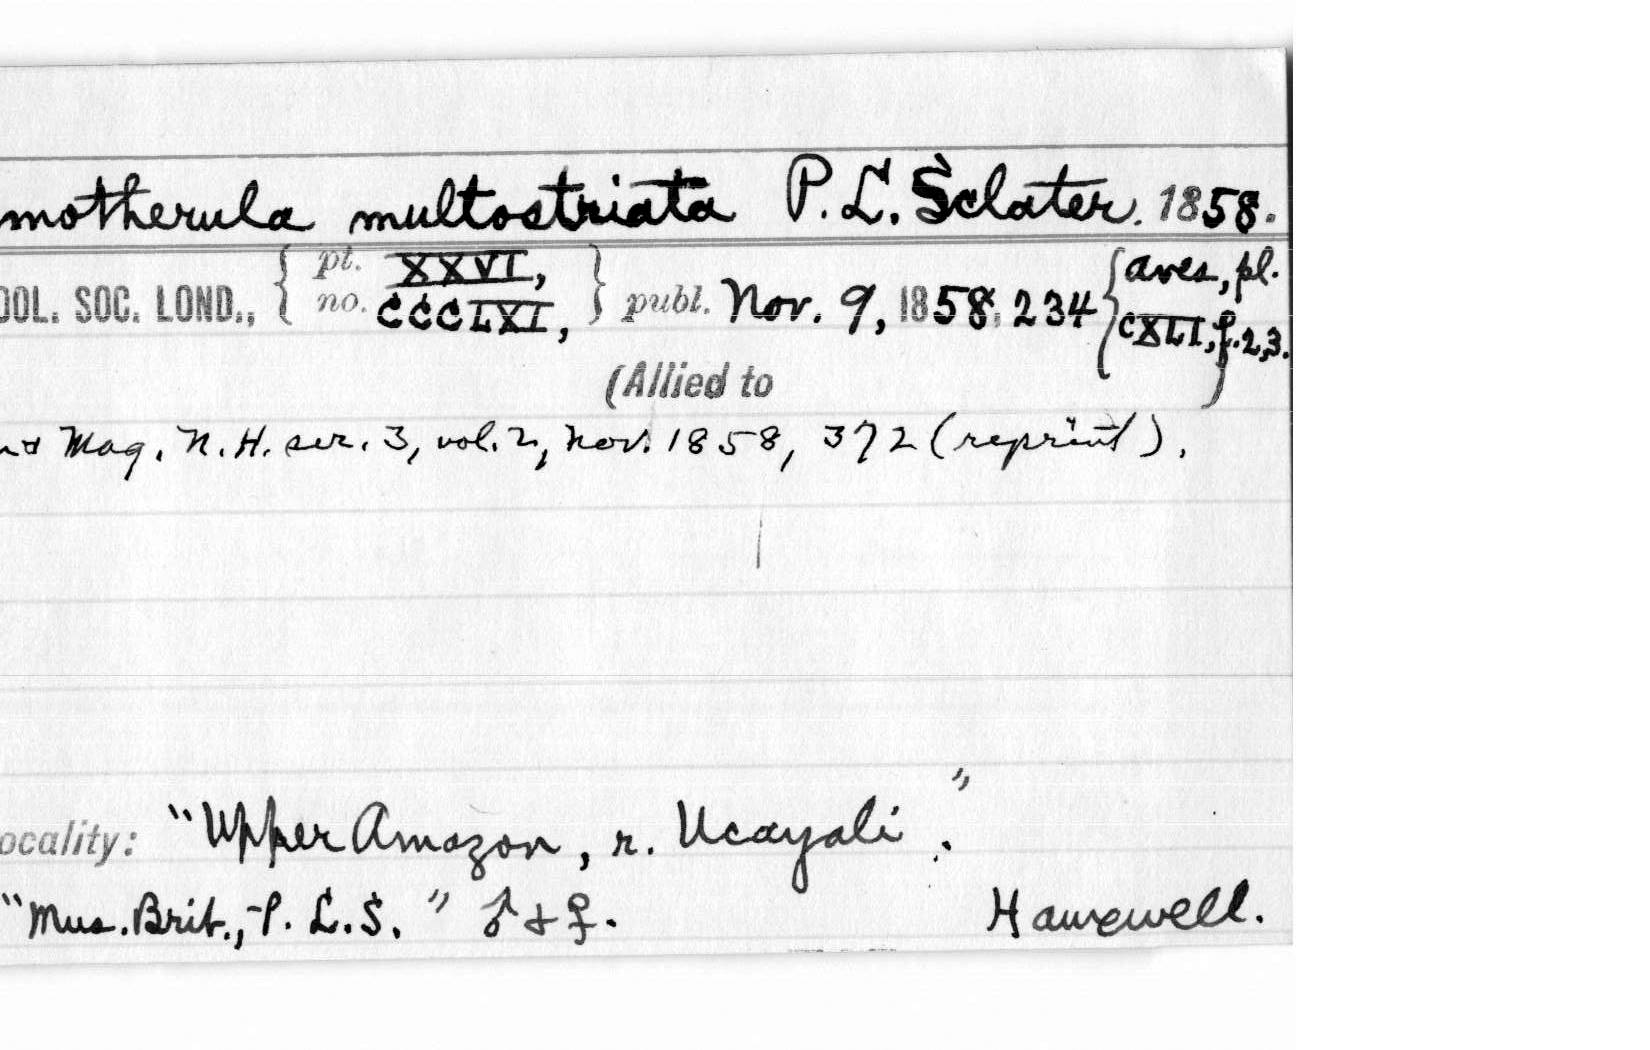 motherula multostriata P. L. Sclater. 1858.
OOL. SOC. LOND., { pt. XXVI, no. CCCLXI, } publ. Nov. 9, 1858, 234 { aves, pl. CXLI, f. 2,3. }
(Allied to
nd Mag. N. H. ser. 3, vol. 2, Nov. 1858, 372 (reprint).
ocality: "Upper Amazon, r. Ucayali."
"Mus. Brit., -P. L. S." ♂ & ♀. Hauxwell.